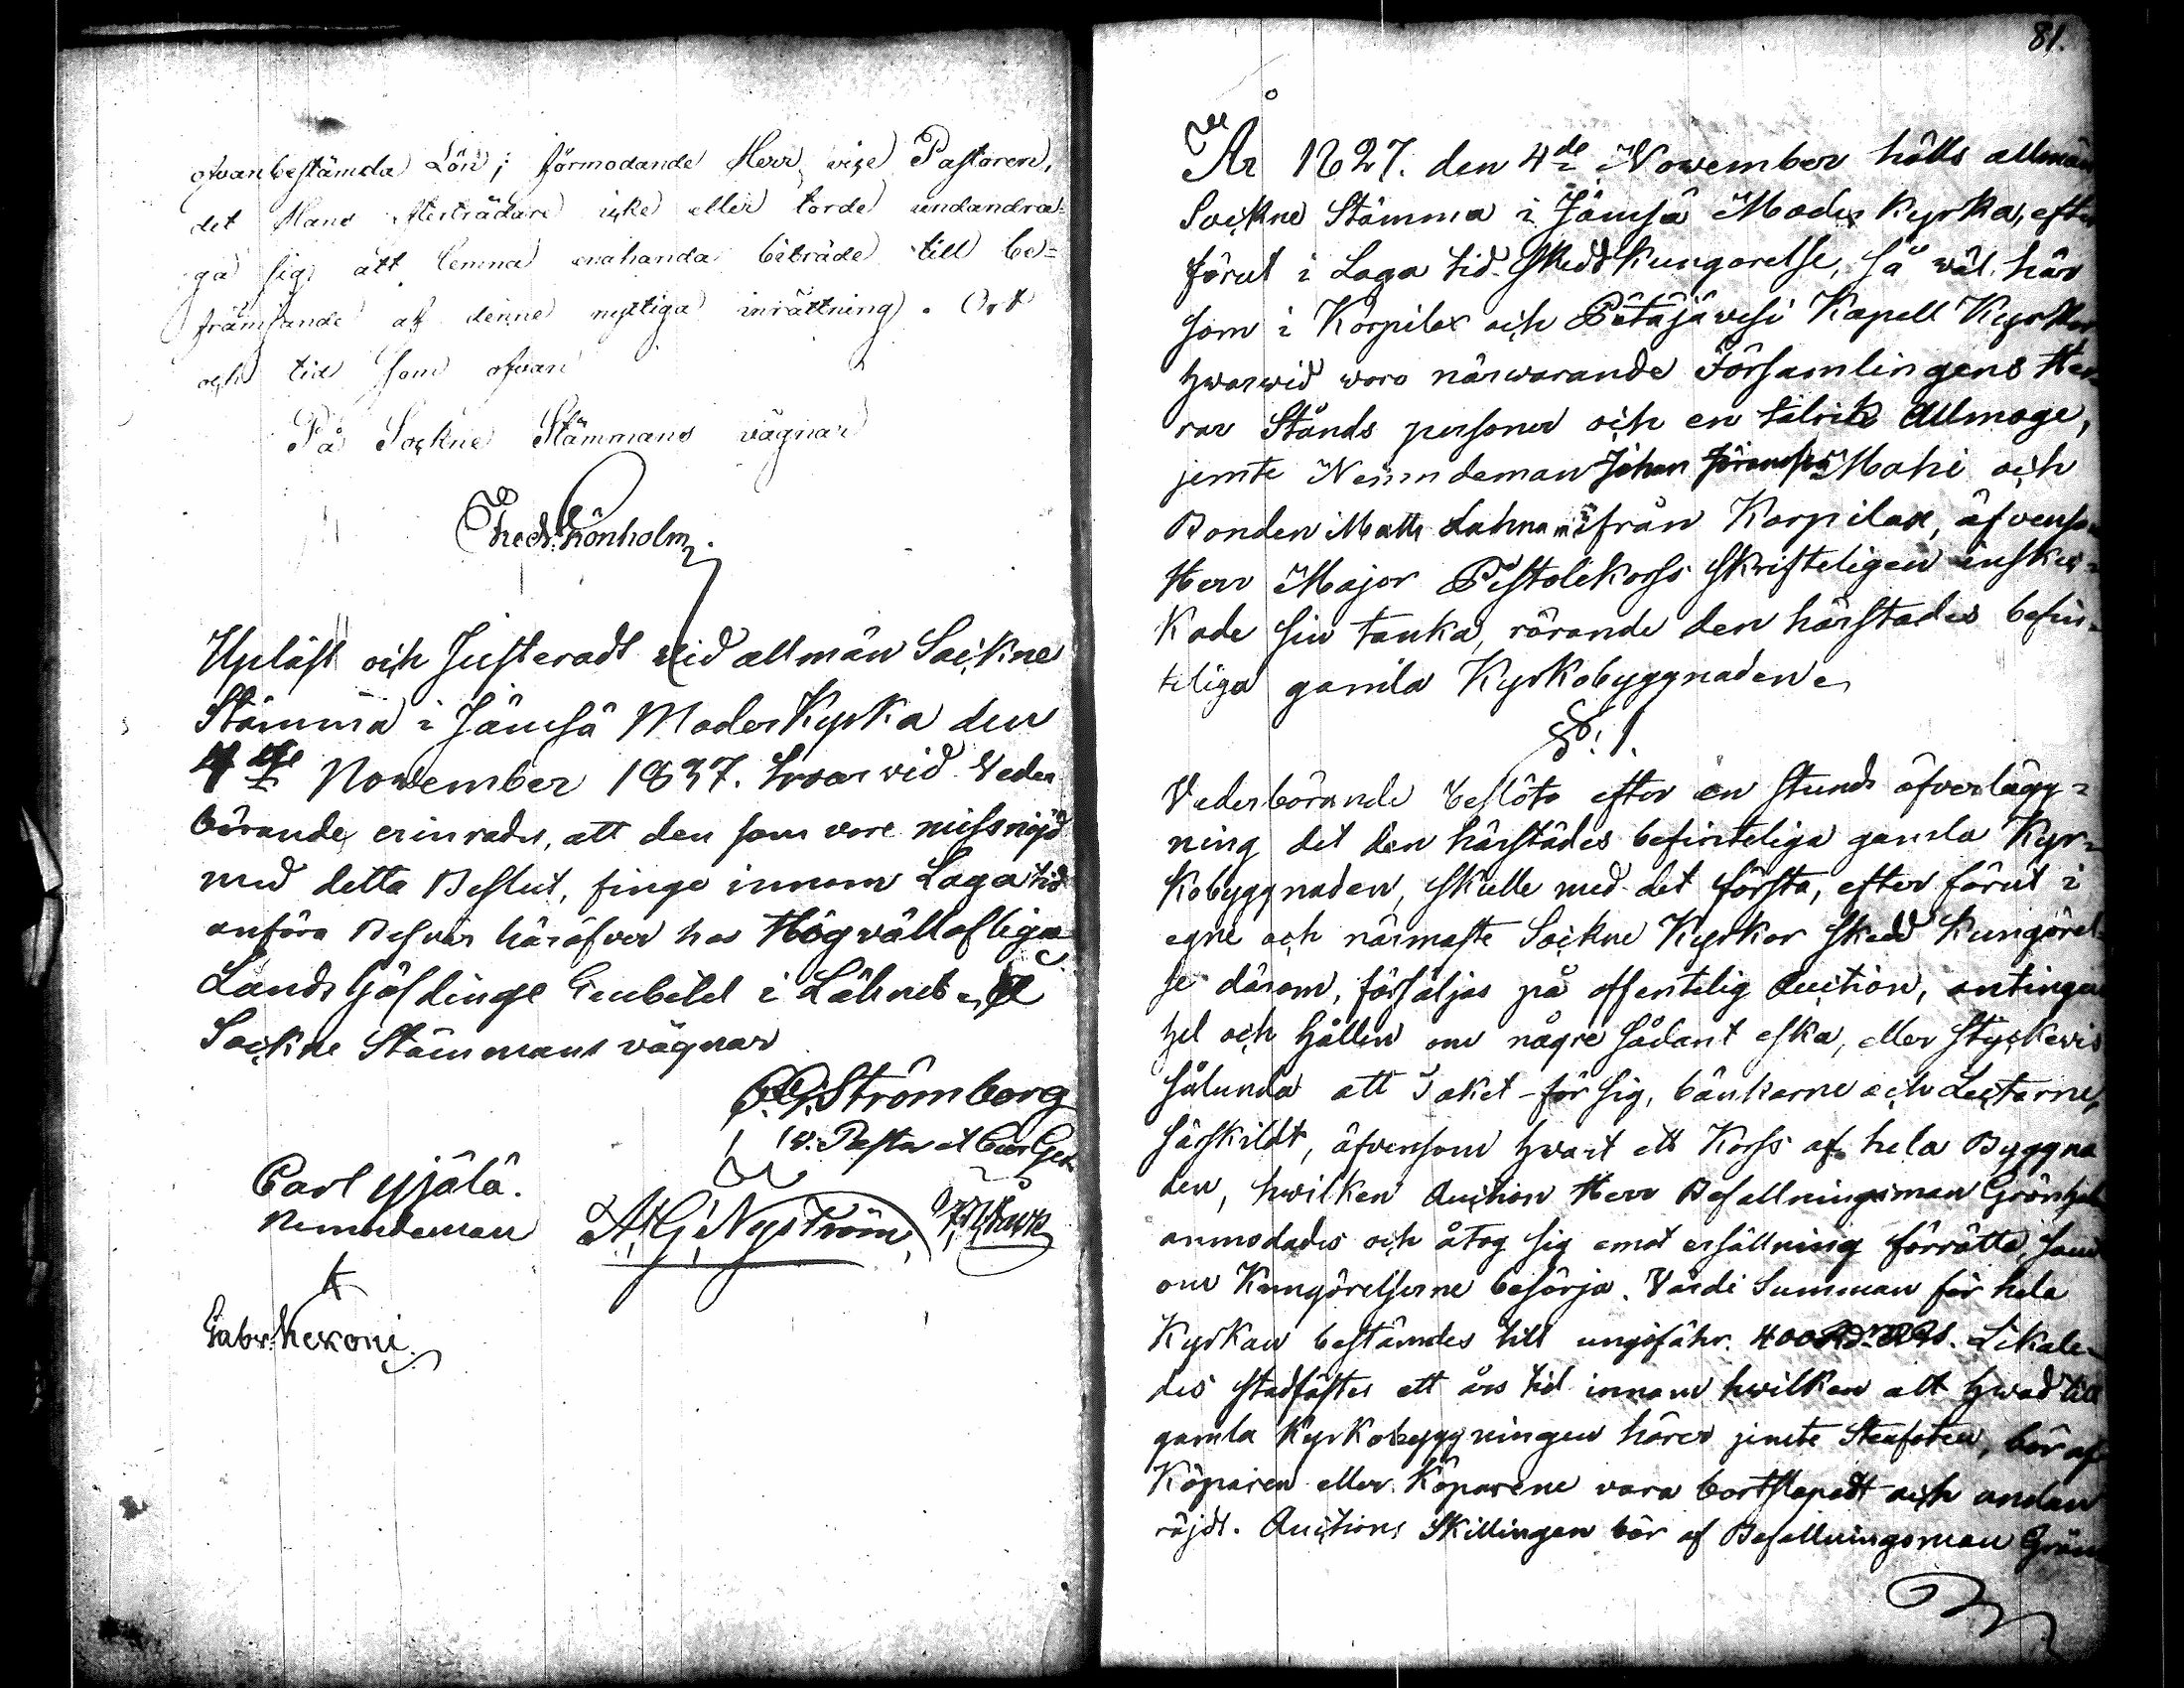 ofvanbestämda Lön; förmodande Herr vice Pastoren,
det Hans efterträdare icke eller torde undandra-
ga sig att lemna enahanda biträde till be-
främjande af denne nyttiga inrättning. Ort
och tid som ofvan
På Sockne Stämmans vägnar
Fredr. Grönholm.
Upläst och Justeradt vid allmän Sockne
Stämma i Jämsä Moder Kyrka den
4de November 1837. hvarvid Veder
börande erinrades, att den som vore missnöjd
med detta Beslut, finge innom Laga tid
anföra Besvär häröfver hos Högvällofliga
Landshöfdinge Embetet i Länet.
Sockne Stämmans vägnar
Strömborg
v. Pastor
Carl yjälä.
Nemndeman
A. G. Nyström,
Gabr. Kexoni
81.
År 1827. den 4de November hölls allmän
Sockne Stämma i Jämsä Moder Kyrka, efter
förut i Laga tid skedd Kungörelse, så väl här
som i Korpilax och Petäjävesi Kapell Kyrkor
hvarvid voro närvarande Församlingens Her-
rar Stånds personer och en talrik Allmoge,
jemte Nemndeman Johan Mahi och
Bonden Matts från Korpilax, äfvensom
Herr Major Pistolekors skrifteligen inskic-
kade sin tanka, rörande den härstädes befin-
teliga gamla Kyrkobyggnaden
§. 1.
Vederbörande beslöto efter en stunds öfverlägg-
ning det den härstädes befinteliga gamla Kyr-
kobyggnaden, skulle med det första, efter förut i
egne och närmaste Sockne Kyrkor skedd Kungörel-
se därom, försäljas på offentelig Auction, antingen
hel och hållen om någre sådant eska, eller styckevis
sålunda att Taket för sig, bänkarne och Lectarne,
särskildt, äfvensom hvart ett Korss af hela Byggna
den, hvilken Auction Herr Befallningsman Grönholm
anmodades och åtog sig emot ersättning förrätta, samt
om Kungörelserne besörja. Värde Summan för hela
Kyrkan bestämdes till ungefähr. 400 Likale-
des stadfästes ett års tid innom hvilken allt hvad till
gamla Kyrkobyggningen hörer jemte Stenfoten, bör af
Köparen eller Köparene vara bortslapadt och undan
röjdt. Auctions Skillingen bör af Befallningsman Grön